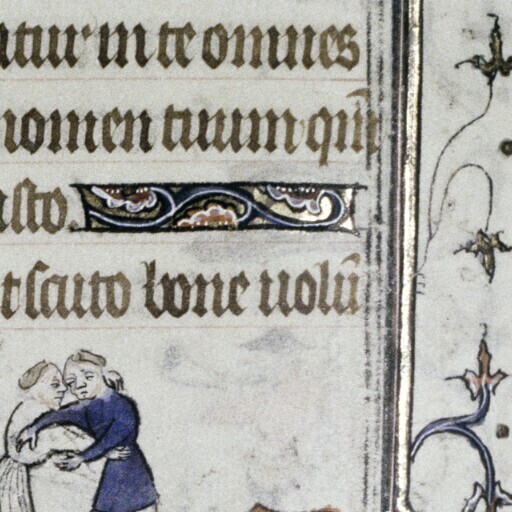 atur in te omnes
nomen tuum qm̄
usto
t scuto bone uolū